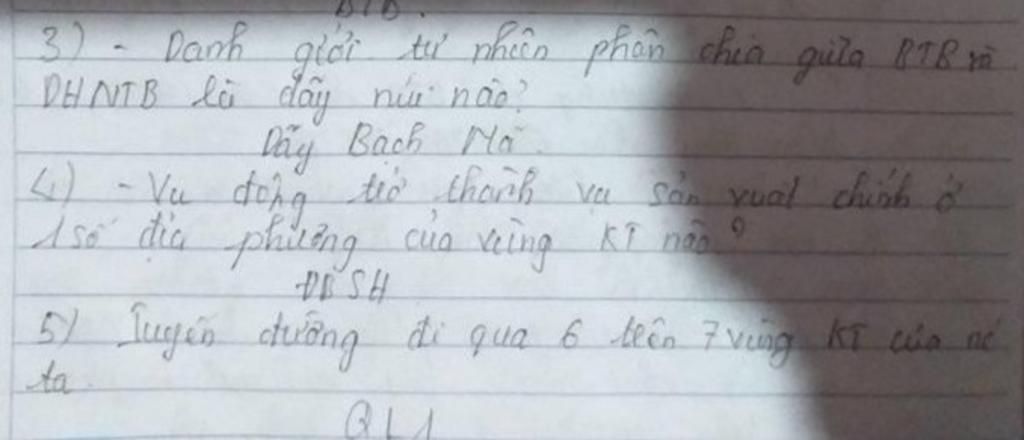 BTB.
3) - Danh giới tự nhiên phân chia giữa BTB và
DHNTB là dãy núi nào?
Dãy Bạch Mã.
4) - Vụ đông trở thành vụ sản xuất chính ở
1 số địa phương của vùng KT nào?
ĐBSH
5) Tuyến đường đi qua 6 trên 7 vùng KT của nc
ta.
QL1